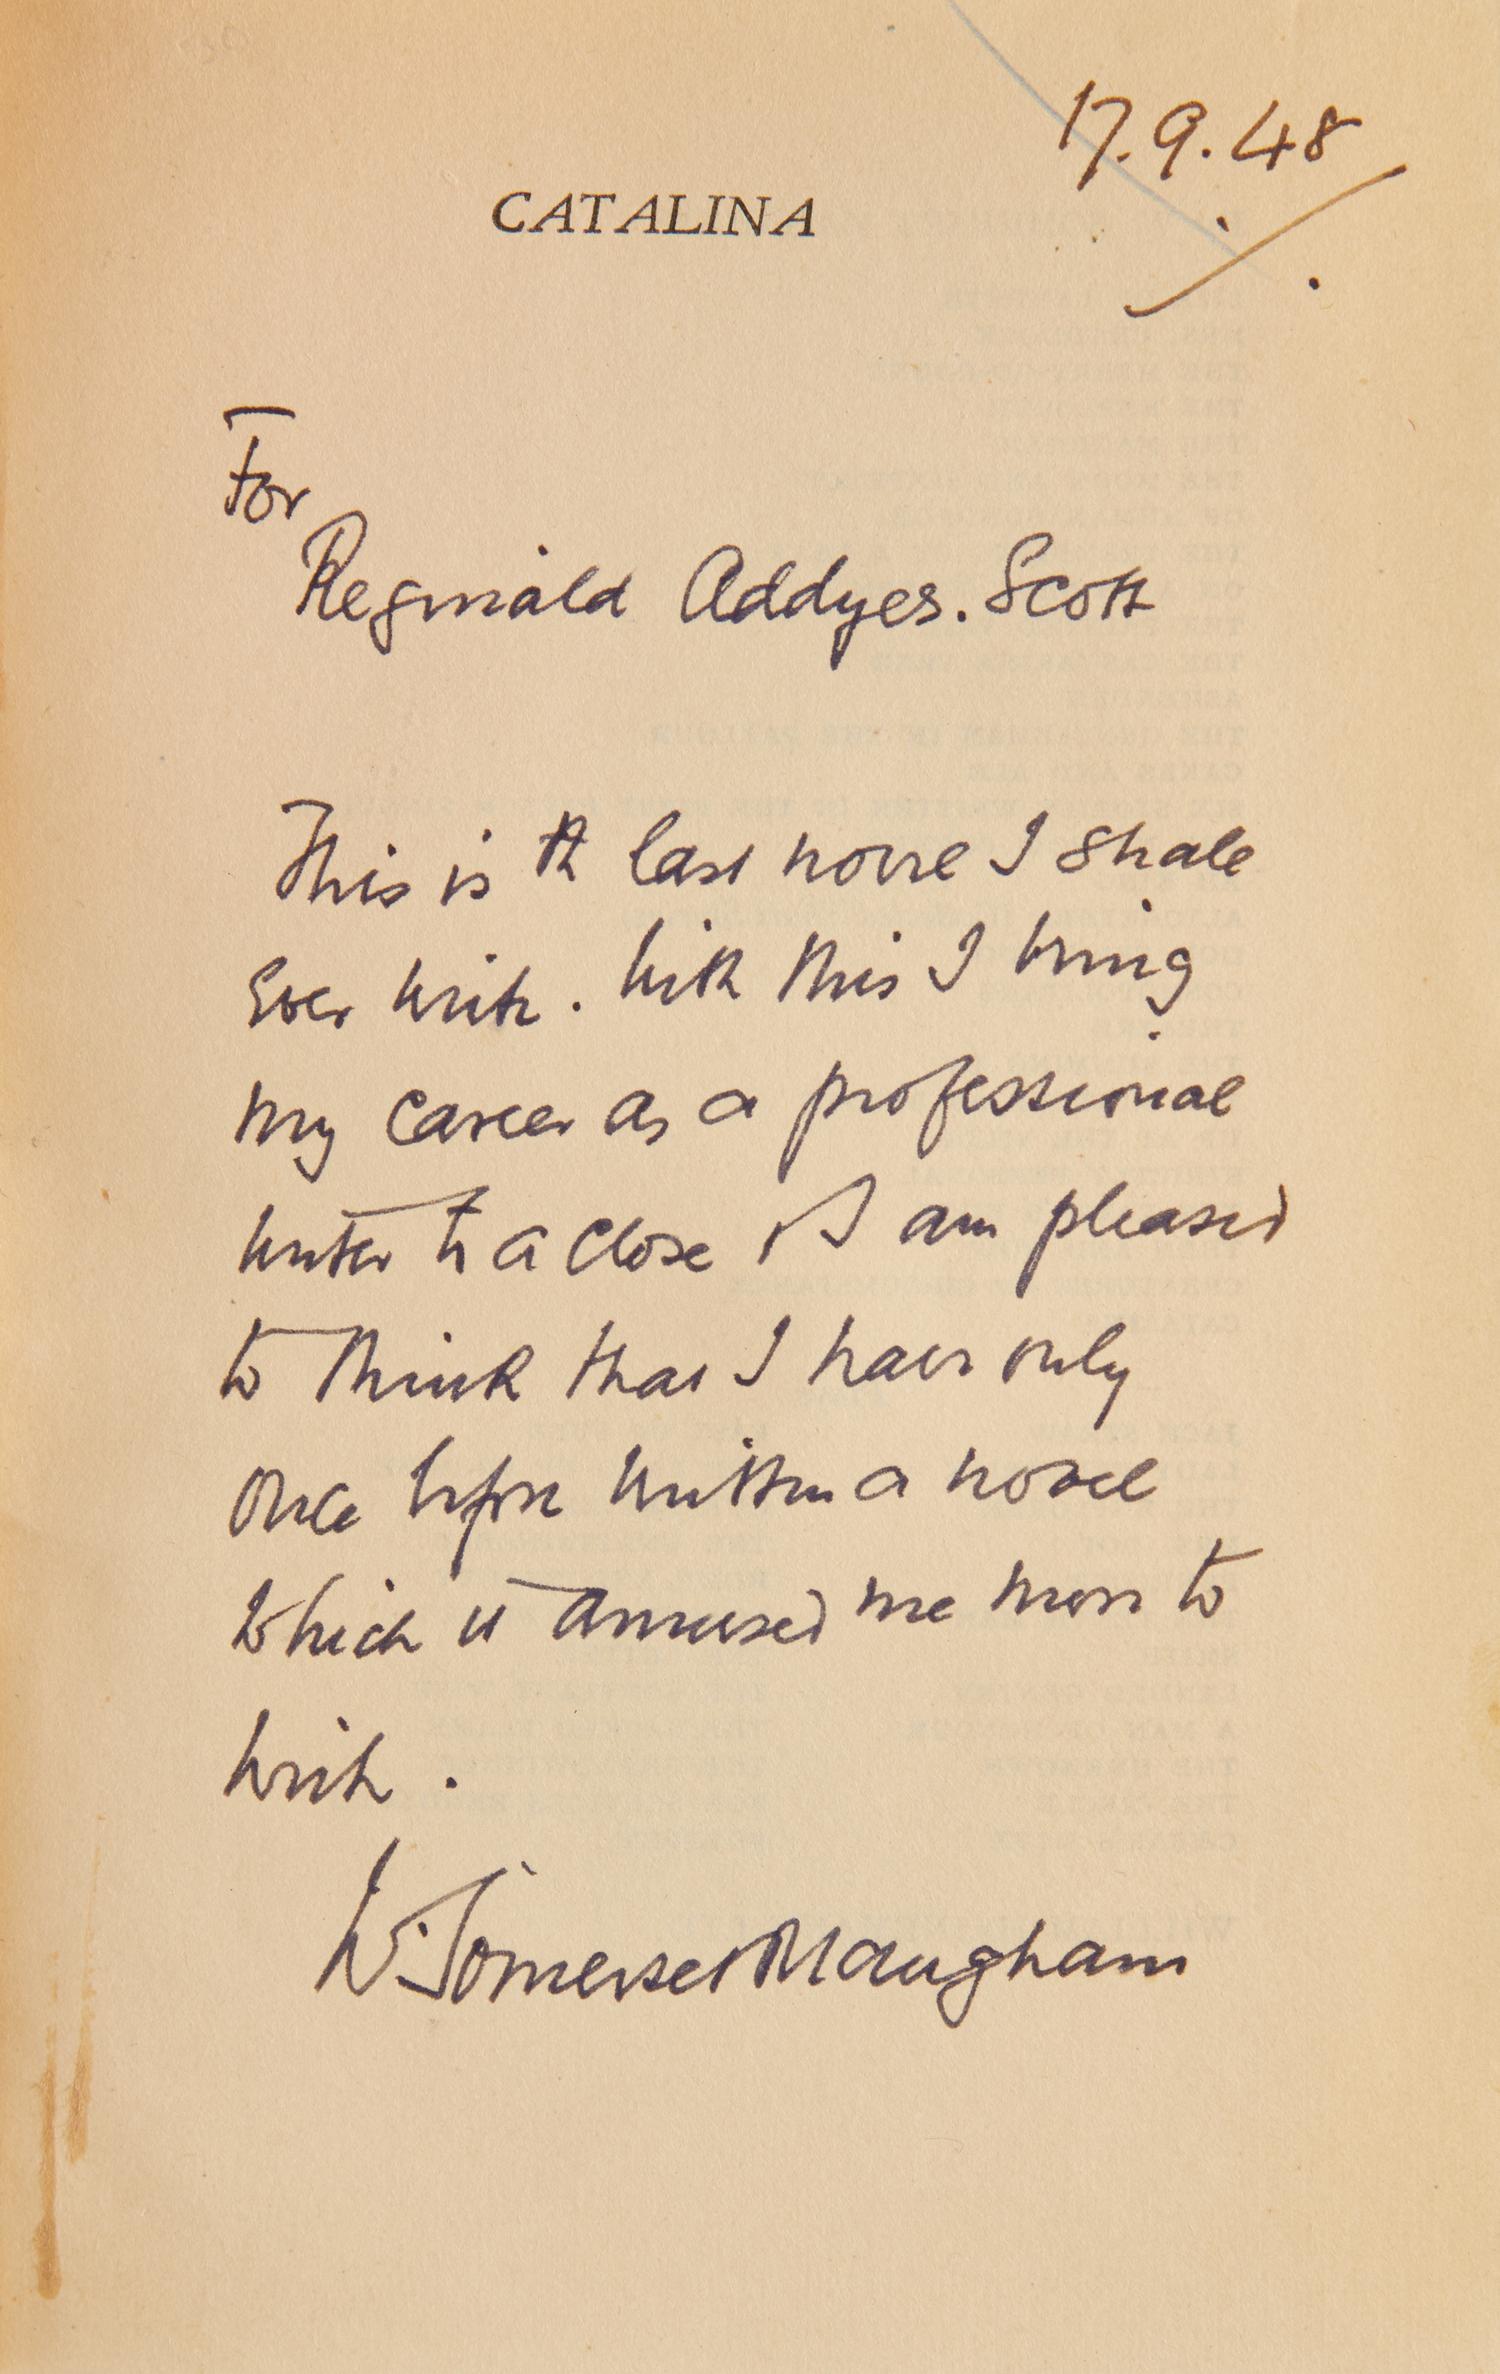 17.9.48
CATALINA
For
Reginald Addyes. Scott
This is the last novel I shall
ever write. With this I bring
my career as a professional
writer to a close & I am pleased
to think that I have only
once before written a novel
which it amused me more to
write.
W. Somerset Maugham